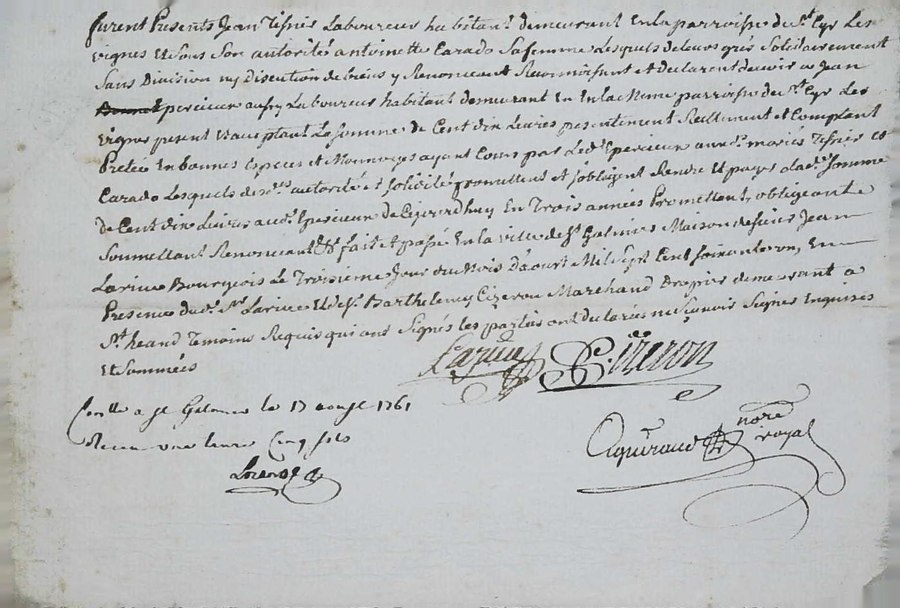 furent Presents Jean Tisnis Laboureur habitant demeurant En la parroisse de St Cyr Les
vignes Et sous son autorité antoinette Carado Sa femme Lesquels de leurs grés Solidairement
Sans Division ny Discution de biens y Renonceant Reconnoissent et declarent devoir a Jean
Epercieux aussy Laboureur habitant demeurant En lad. meme parroisse de St Cyr Les
vignes present et acceptant La somme de Cent dix Livres presentement Reellement et Comptant
Pretée En bonnes Especes et Monnoyes ayant Cours par Led. Epercieux auxd. mariés Tisnis et
Carado Lesquels de sd. autorité et solidité promettent et s'obligent Rendre Et payer lad. somme
de Cent dix Livres aud. Epercieux de Cejourdhuy En Trois années Promettant, obligeant
Soumettant Renonceant & fait et passé En la ville de St Galmier Maison de sieur Jean
Larive Bourgeois Le Troisieme Jour du Mois D'aoust Mil sept Cent soixante un, En
Presence dud. Sr. Larive Et de Sr. Barthelemy Cizeron Marchand Drapier demeurant a
St. heand Temoins Requis qui ont signés les parties ont declarés ne sçavoir signer Enquises
Et Sommées
Larive B. Cizeron
Conlle a St Galmier le 17 aoust 1761
Receu une livre Cinq sols
nore
royal